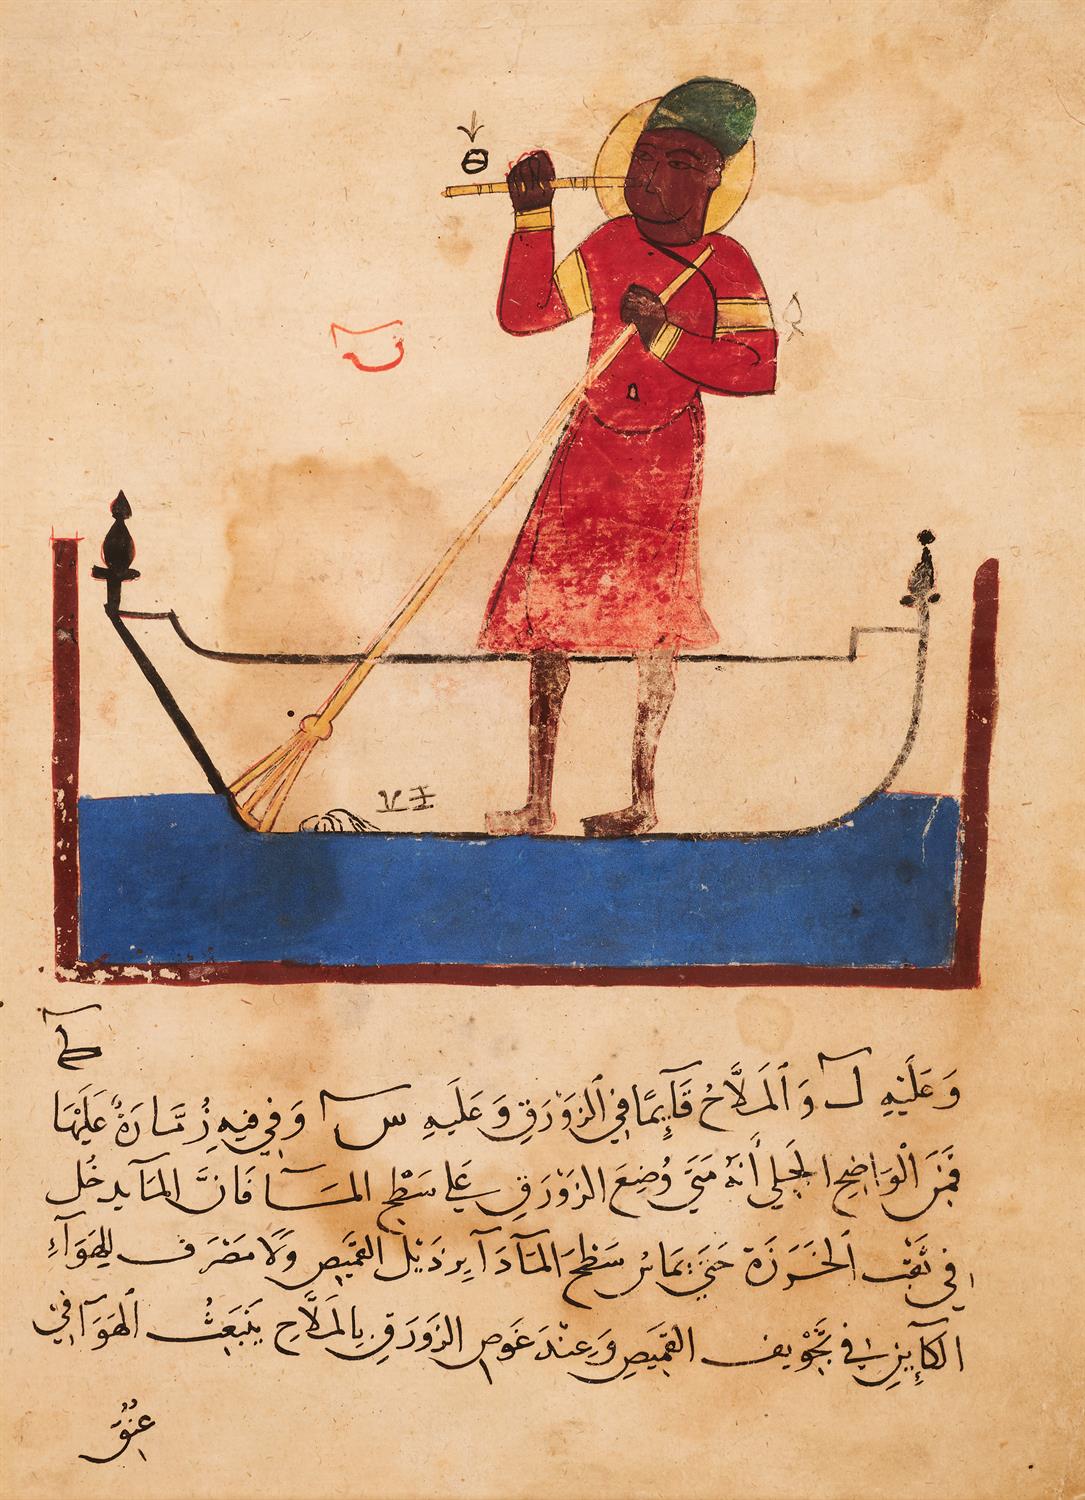 وَعَلَيْهِ ك وَالمَلَّاحُ قَآئِمًا فِي الزَوْرَقِ وَعَلَيهِ س وَفِي فِيهِ زُمَّارَةٌ عَلَيْهَا
فَمِنَ الْوَاضِحِ الجَلِي أَنَهُ مَتَى وُضِعَ الزَوْرَقِ عَلى سَطْحِ المَآ فَانَّ المَآ يدخُل
في ثَقْبِ الخَرَزَة حَتَى يمَاسُ سَطْحَ المَآ دَآير ذَيْل القَمِيصِ وَلَا مَصْرَف للِهَوَآءِ
الكَآئِنِ فِي تَجْوِيف القَمِيصِ وَعِنْدَ غَوصِ الزَورَقِ بِالمَلَّاحِ يَنْبَعِثُ الهَوَآ فِي
عُنُقِ